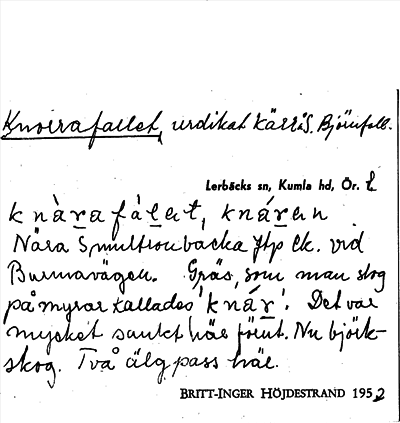 Knoirafallet, urdikat kärr S. Björnfall.
Lerbäcks sn, Kumla hd, Ör. l.
knàrafál̲et, knáren
Nära Smultronbacka ftp lk. vid
Burmavägen. Gräs, som man slog
på myrar kallades 'knár'. Det var
mycket sankt här förut. Nu björk-
skog. Två älgpass här.
BRITT-INGER HÖJDESTRAND 1952